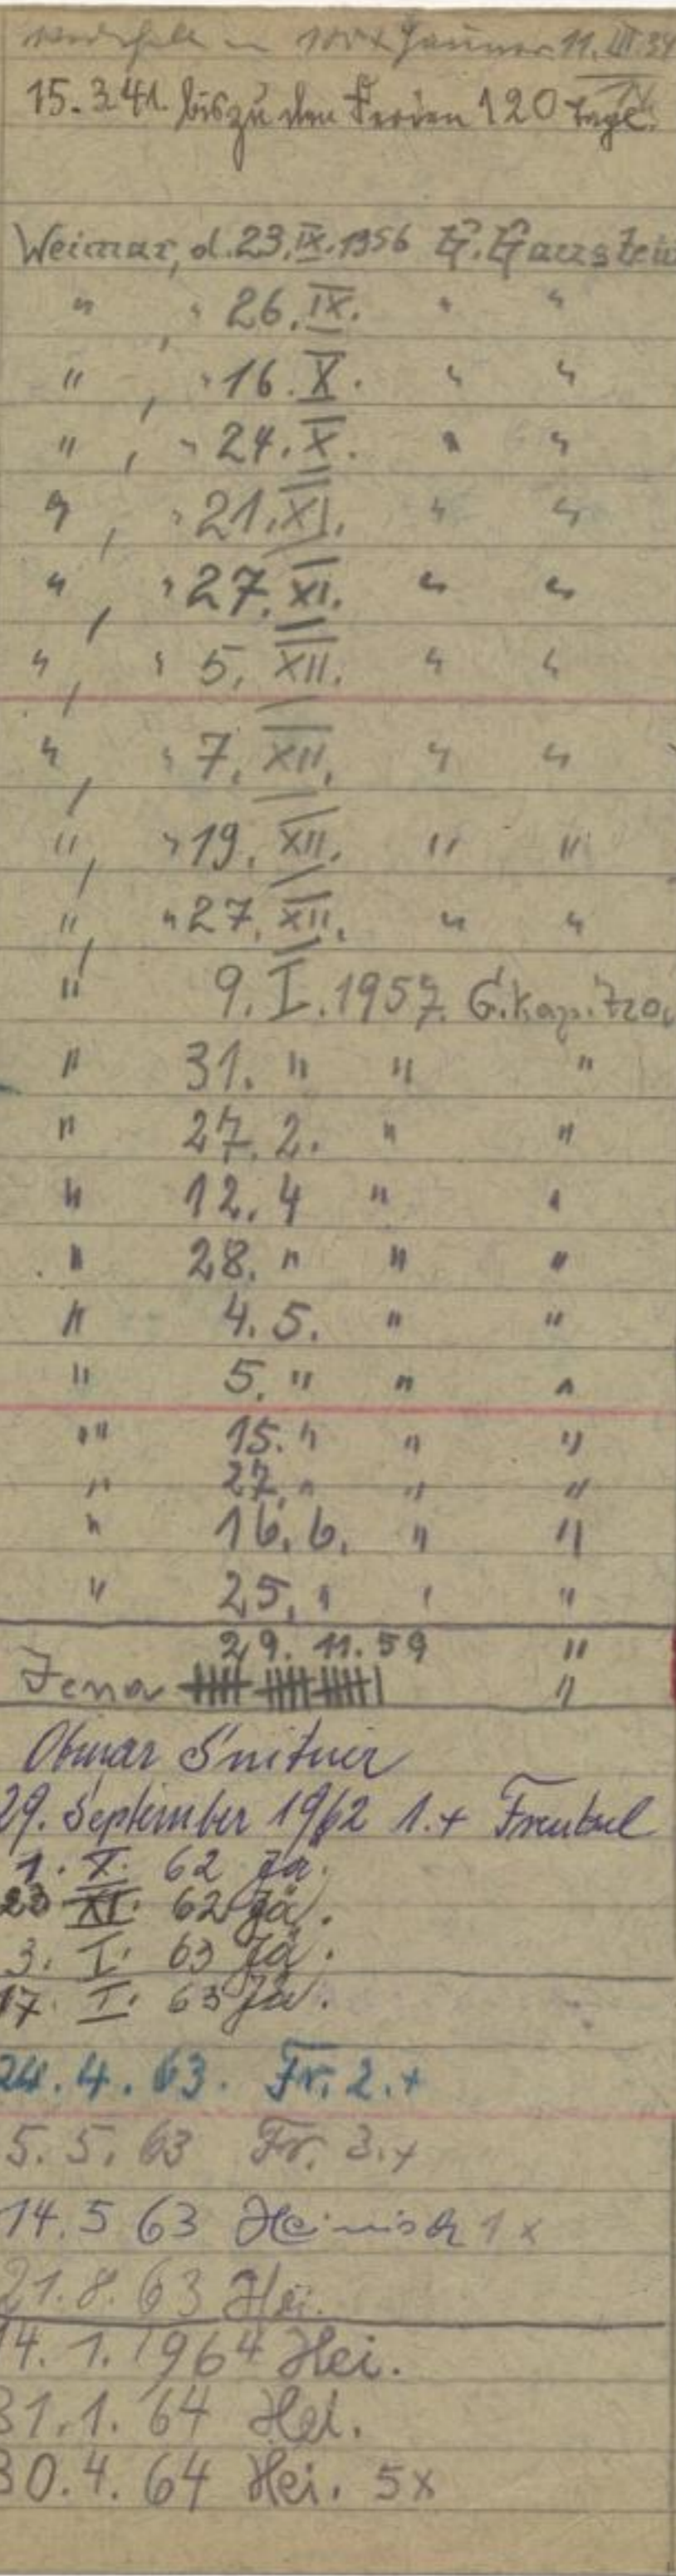 100 x Jauner 11.III.34
15.3.41. bis zu den Ferien 120 Tage.
Weimar, d. 23.IX.1956 G. Garnstein
" , " 26.IX. " "
" , " 16.X. " "
" , " 24.X. " "
" , " 21.XI. " "
" , " 27.XI. " "
" , " 5.XII. " "
" , " 7.XII. " "
" , " 19.XII. " "
" , " 27.XII. " "
" 9.I.1957. G.
" 31. " " "
" 27.2. " "
" 12.4 " "
" 28. " " "
" 4.5. " "
" 5. " " "
" 15. " " "
" 27. " " "
" 16.6. " "
" 25. " " "
29.11.59 "
Jena "
29. September 1962 1.x Frenkel
1. X. 62 Jä.
23 XI. 62 Jä.
3. I. 63 Jä.
17. I. 63 Jä.
24.4.63. Fr. 2.x
5.5.63 Fr. 3.x
14.5 63 Heinisch 1x
21.8.63 Hei.
14.1.1964 Hei.
31.1.64 Hei.
30.4.64 Hei. 5x